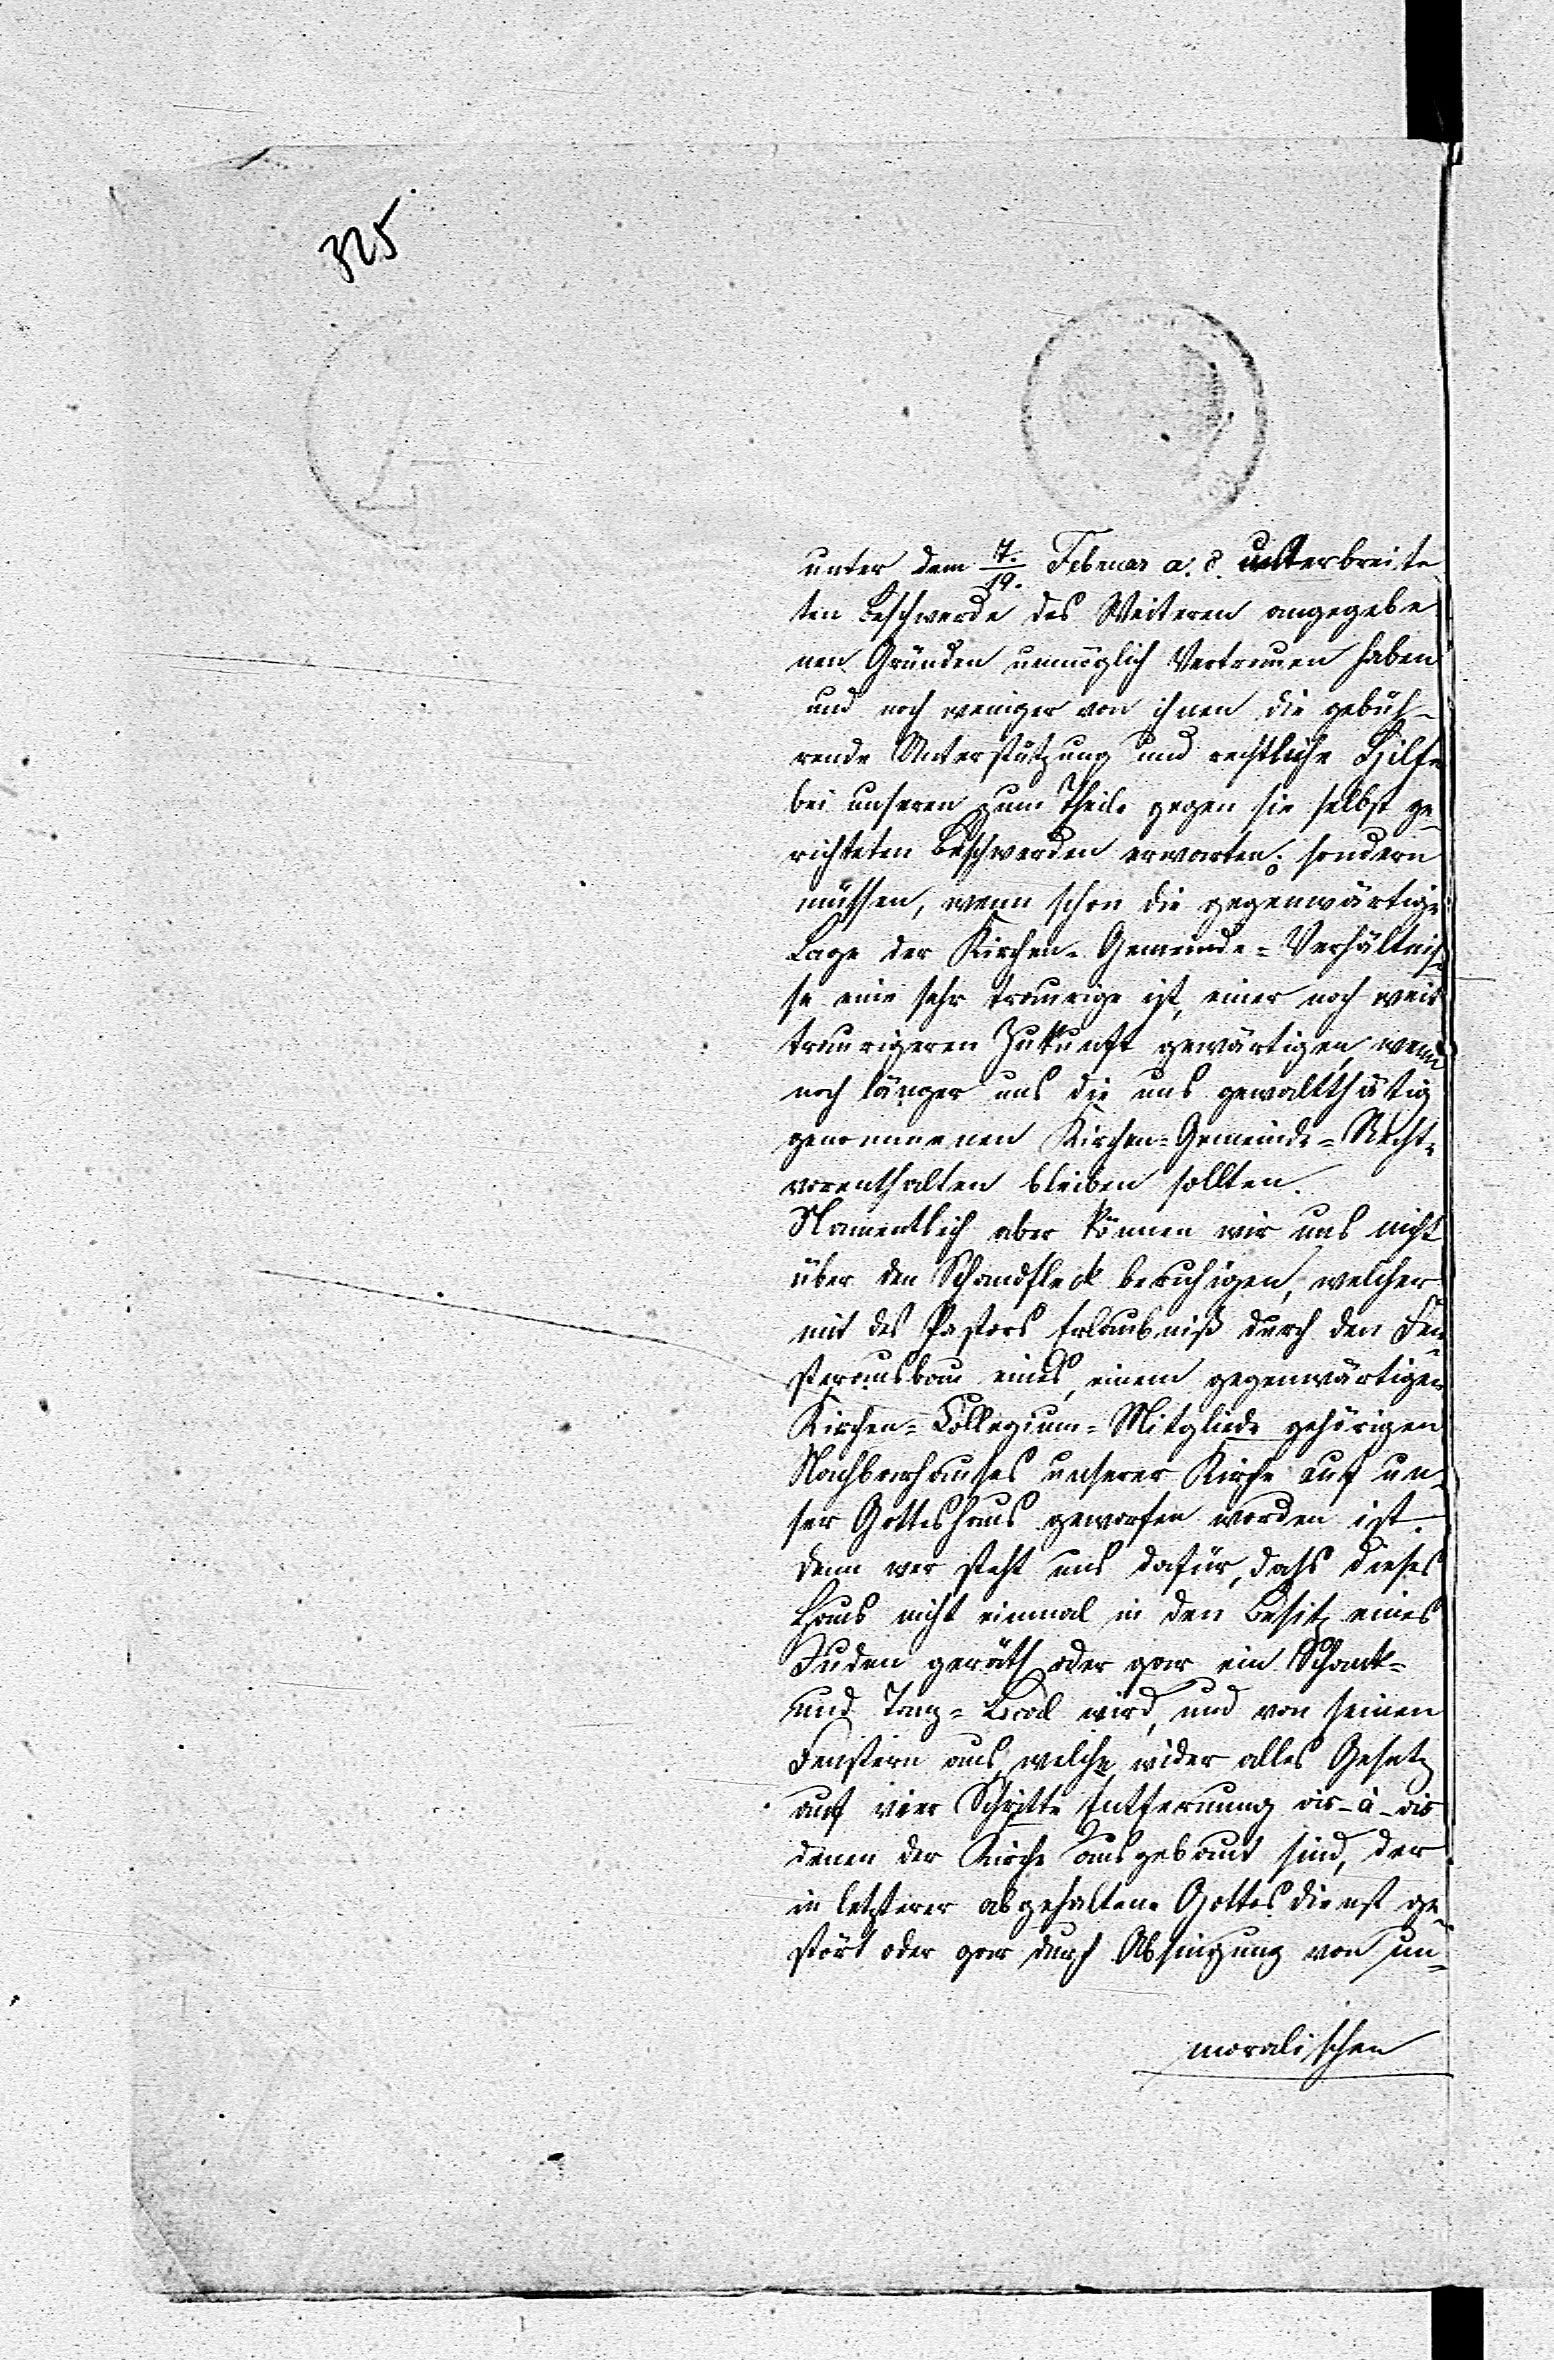 325
unter dem 7./19. Februar a. c. unterbreite
ten Beschwerde des Weiteren angegebe
nen Gründen unmöglich Vertrauen haben
und noch weniger von ihnen die gebüh-
rende Unterstützung und rechtliche Hilfe
bei unseren zum Theile gegen sie selbst ge-
richteten Beschwerden erwarten; sondern
müssen, wenn schon die gegenwärtige
Lage der Kirchen-Gemeinde-Verhältnis-
se eine sehr traurige ist, einer noch weit
traurigeren Zukunft gewärtigen, wenn
noch länger uns die uns gewaltthätig
genommenen Kirchen-Gemeinde-Rechte
vorenthalten bleiben sollten.
Namentlich aber können wir uns nicht
über den Schandfleck beruhigen, welcher
mit des Pastors Erlaubniß durch den Fen-
sterausbau eines, einem gegenwärtigen
Kirchen-Collegium-Mitgliede gehörigen
Nachbarhauses unserer Kirche auf un-
ser Gotteshaus geworfen worden ist.
denn wer steht uns dafür, dass dieses
Haus nicht einmal in den Besitz eines
Juden geräth oder gar ein Schank-
und Tanz-Local wird, und von seinen
Fenstern aus, welche wider alles Gesetz
auf vier Schritte Entfernung vis-à-vis
denen der Kirche ausgebaut sind, der
in letzterer abgehaltene Gottesdienst ge-
stört oder gar durch Absingung von un-
moralischen